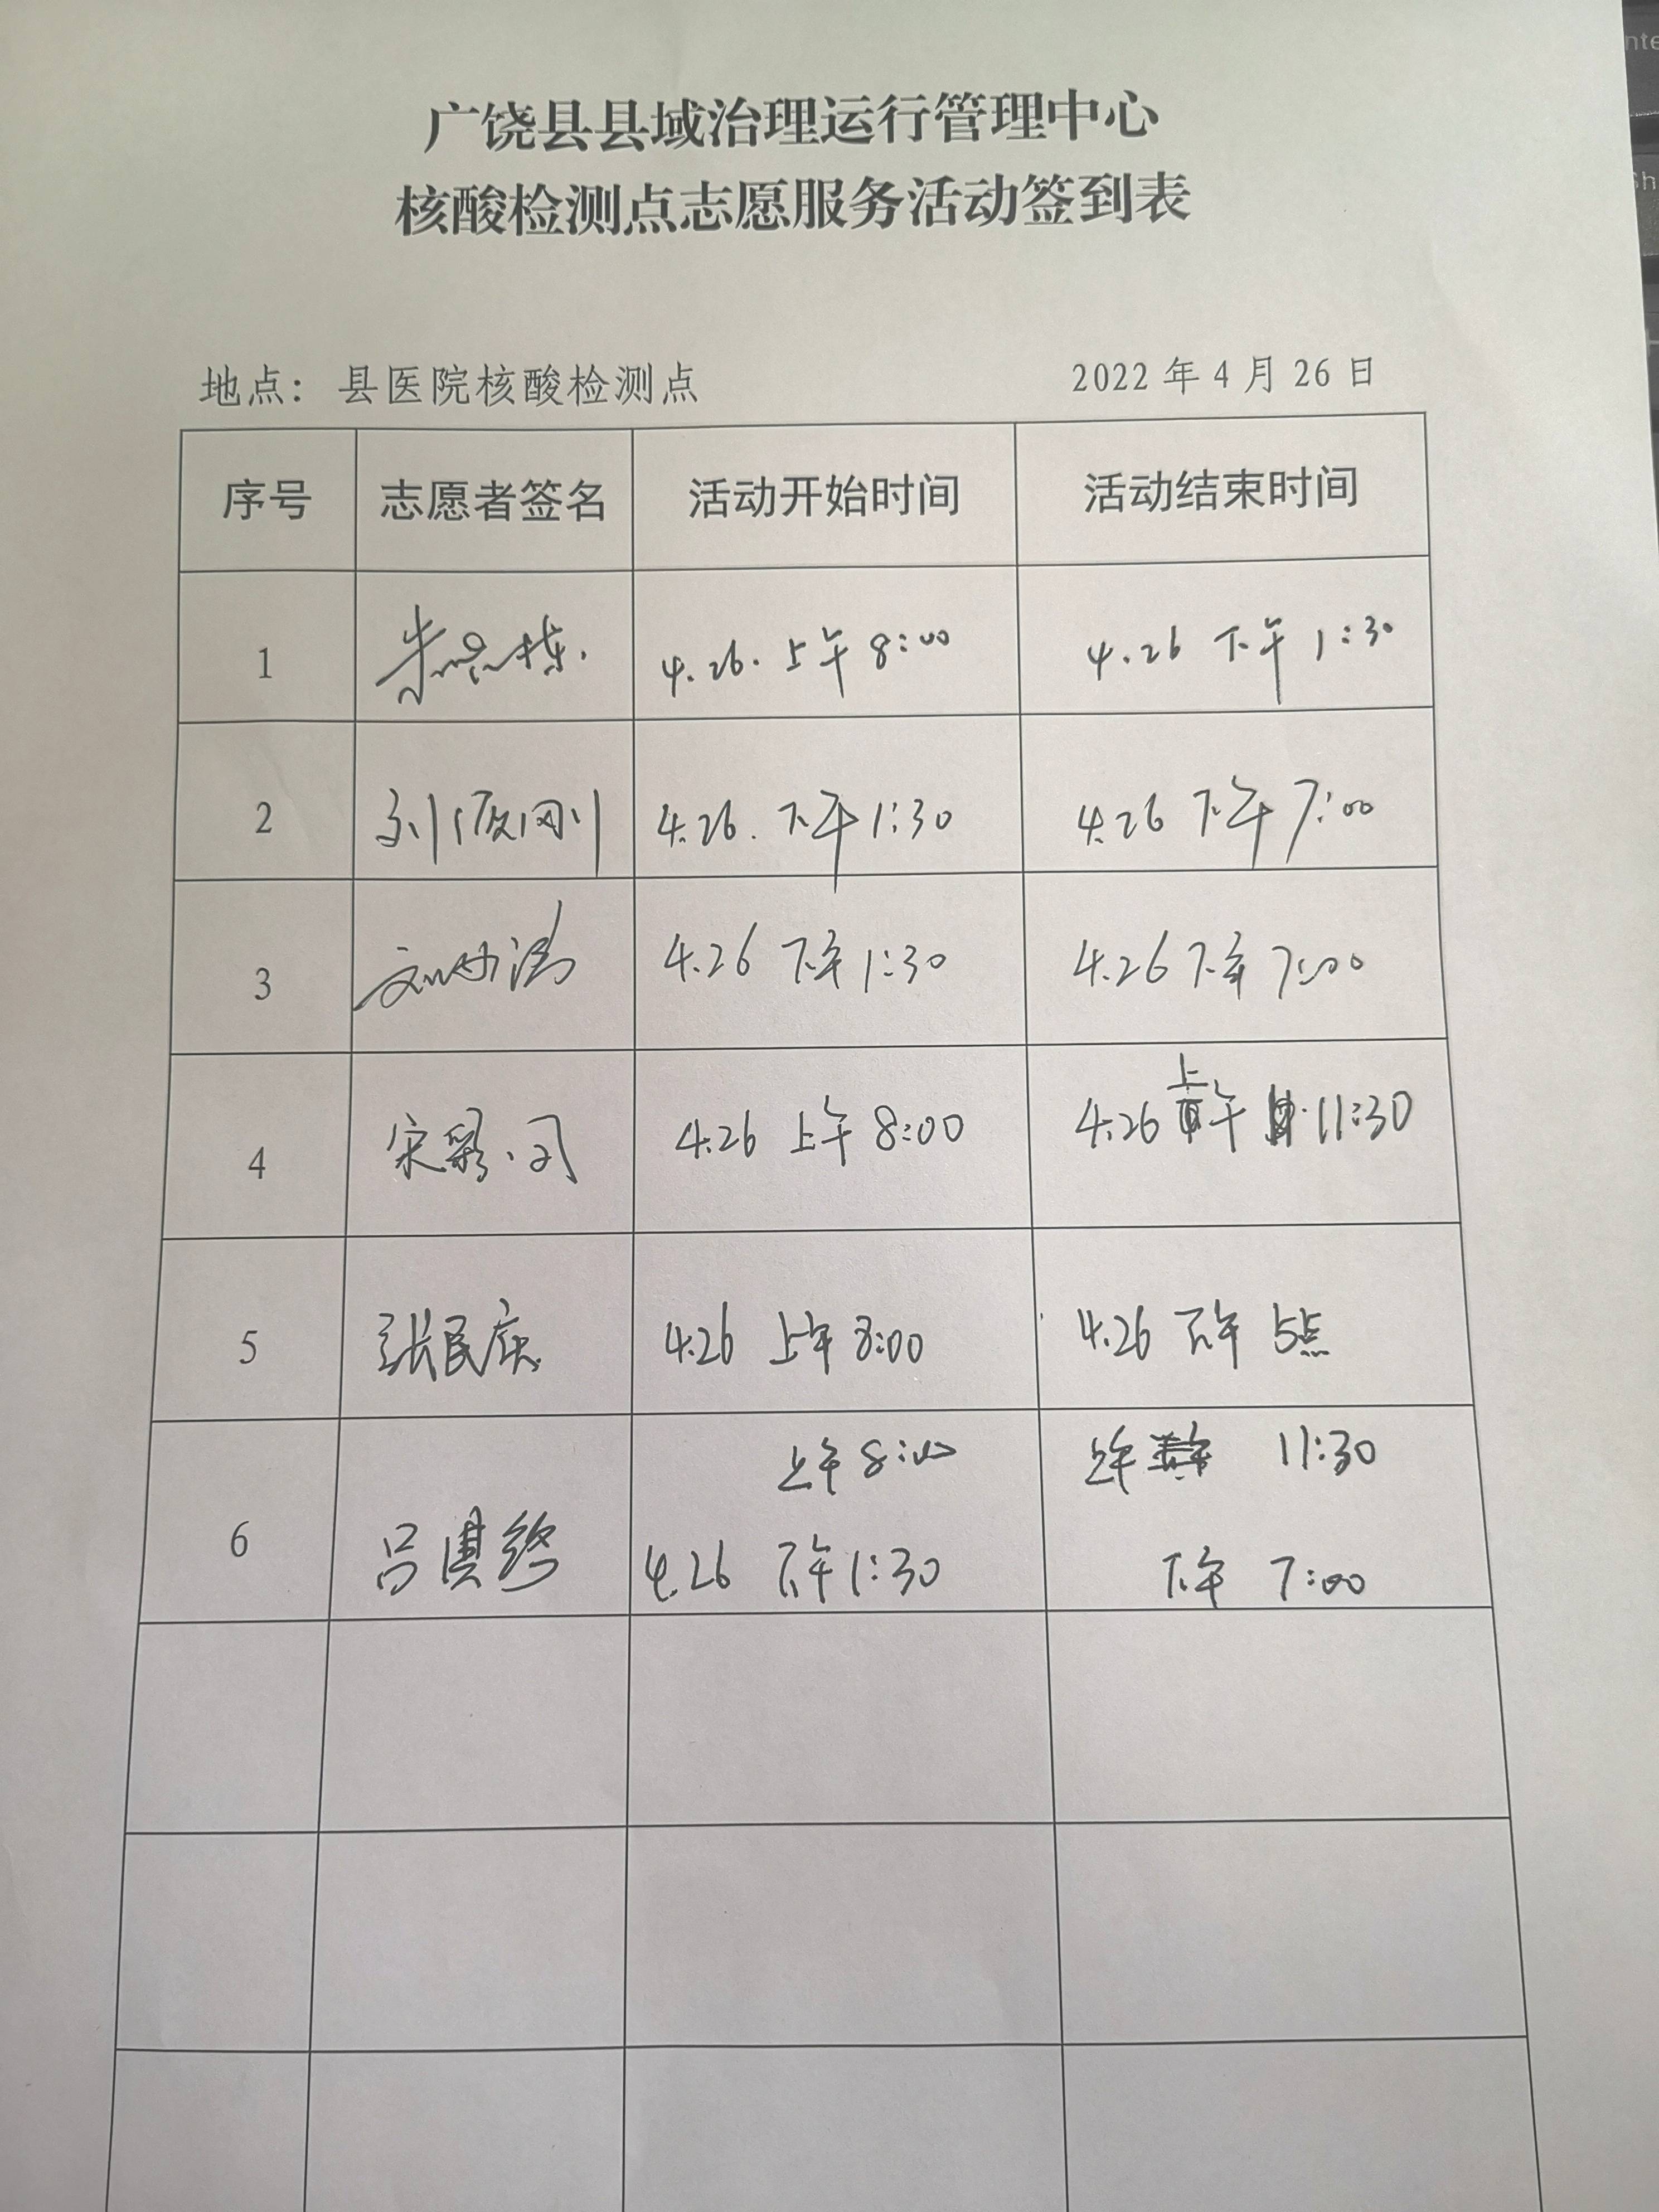 广饶县县域治理运行管理中心
核酸检测点志愿服务活动签到表
地点：县医院核酸检测点 2022年4月26日
序号 志愿者签名 活动开始时间 活动结束时间
1 4.26. 上午 8:00 4.26 下午 1:30
2 4.26. 下午 1:30 4.26 下午 7:00
3 4.26 下午 1:30 4.26 下午 7:00
4 4.26 上午 8:00 4.26 上午 11:30
5 张民庆 4.26 上午 8:00 4.26 下午 5点
上午 8:00 上午 11:30
6 4.26 下午 1:30 下午 7:00